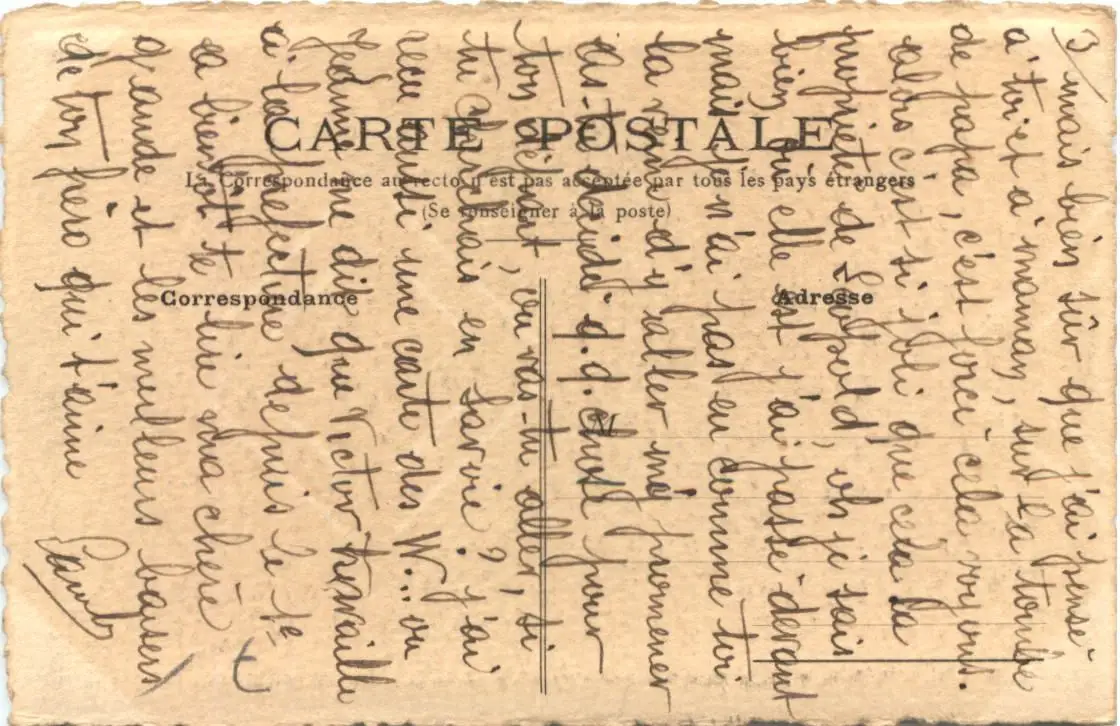 CARTE POSTALE
La Correspondance au recto n'est pas acceptée par tous les pays étrangers
(Se renseigner à la poste)
Correspondance
Adresse
M
3/ mais bien sûr que j'ai pensé
à toi et à maman, sur la tombe
de papa, c'est forcé cela voyons.
alors c'est si joli que cela la
propriété de Léopold, oh je sais
bien où elle est j'ai passé devant
mais je n'ai pas eu comme toi
la veine d'y aller me promener
as-tu décidé q.q. chose pour
ton départ, ou vas-tu aller, si
tu en Savoie ? j'ai
reçu aussi une carte des W... ou
Jeanne dit que Victor travaille
à la préfecture depuis le
à bientôt te lire ma chérie
grande et les meilleurs baisers
de ton frero qui t'aime